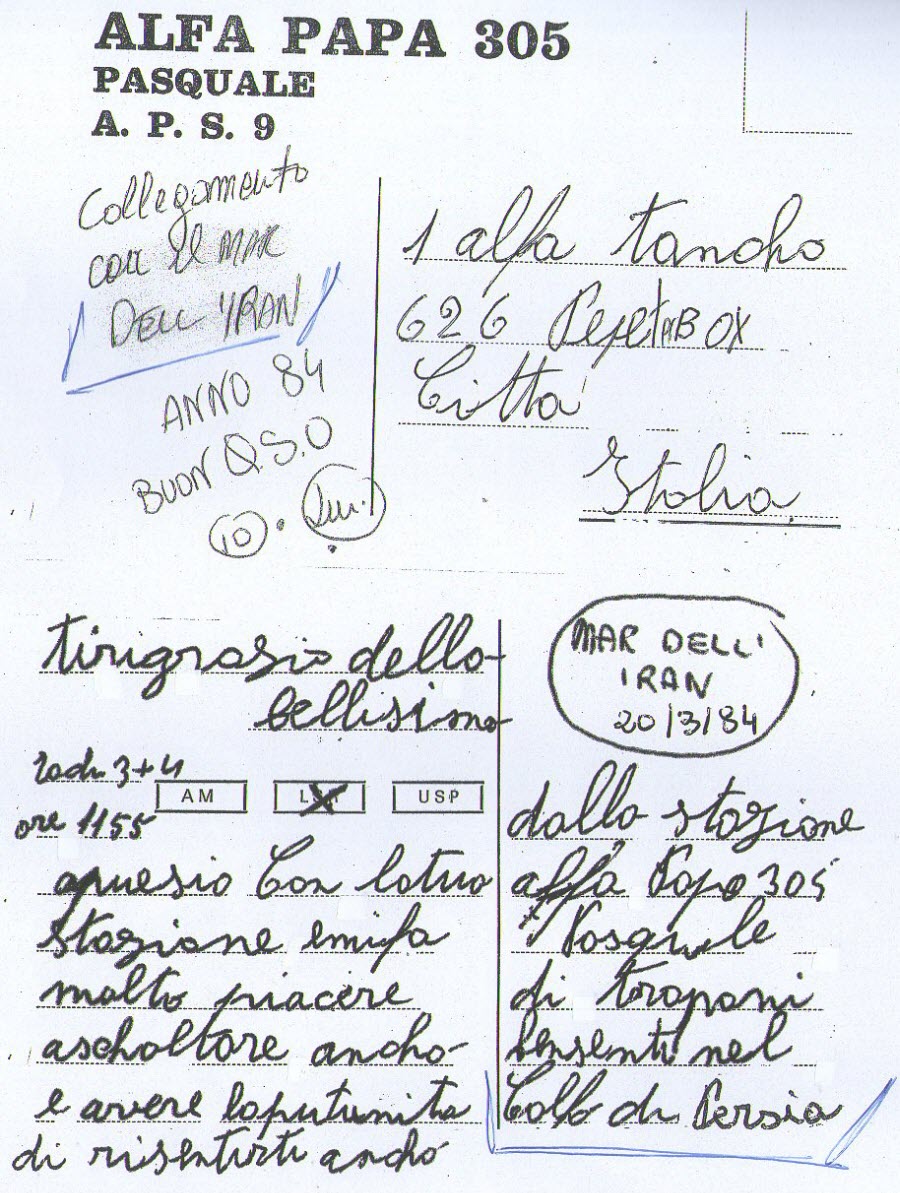 ALFA PAPA 305
PASQUALE
A. P. S. 9
Collegamento
con il MAR
DELL'IRAN
ANNO 84
BUON Q.S.O
1 alfa tancho
626 BOX
Citta
Italia
tirigrasio dello
bellisimo
MAR DELL'
IRAN
20/3/84
3+4
AM USP
ore 1155
Con lotuo
stazione emifa
molto piacere
ascholtare ancho
e avere loputunita
di risentirti ancho
dallo stazione
alfa Papa 305
Pasquale
di trapani
nel
Colfo di Persia